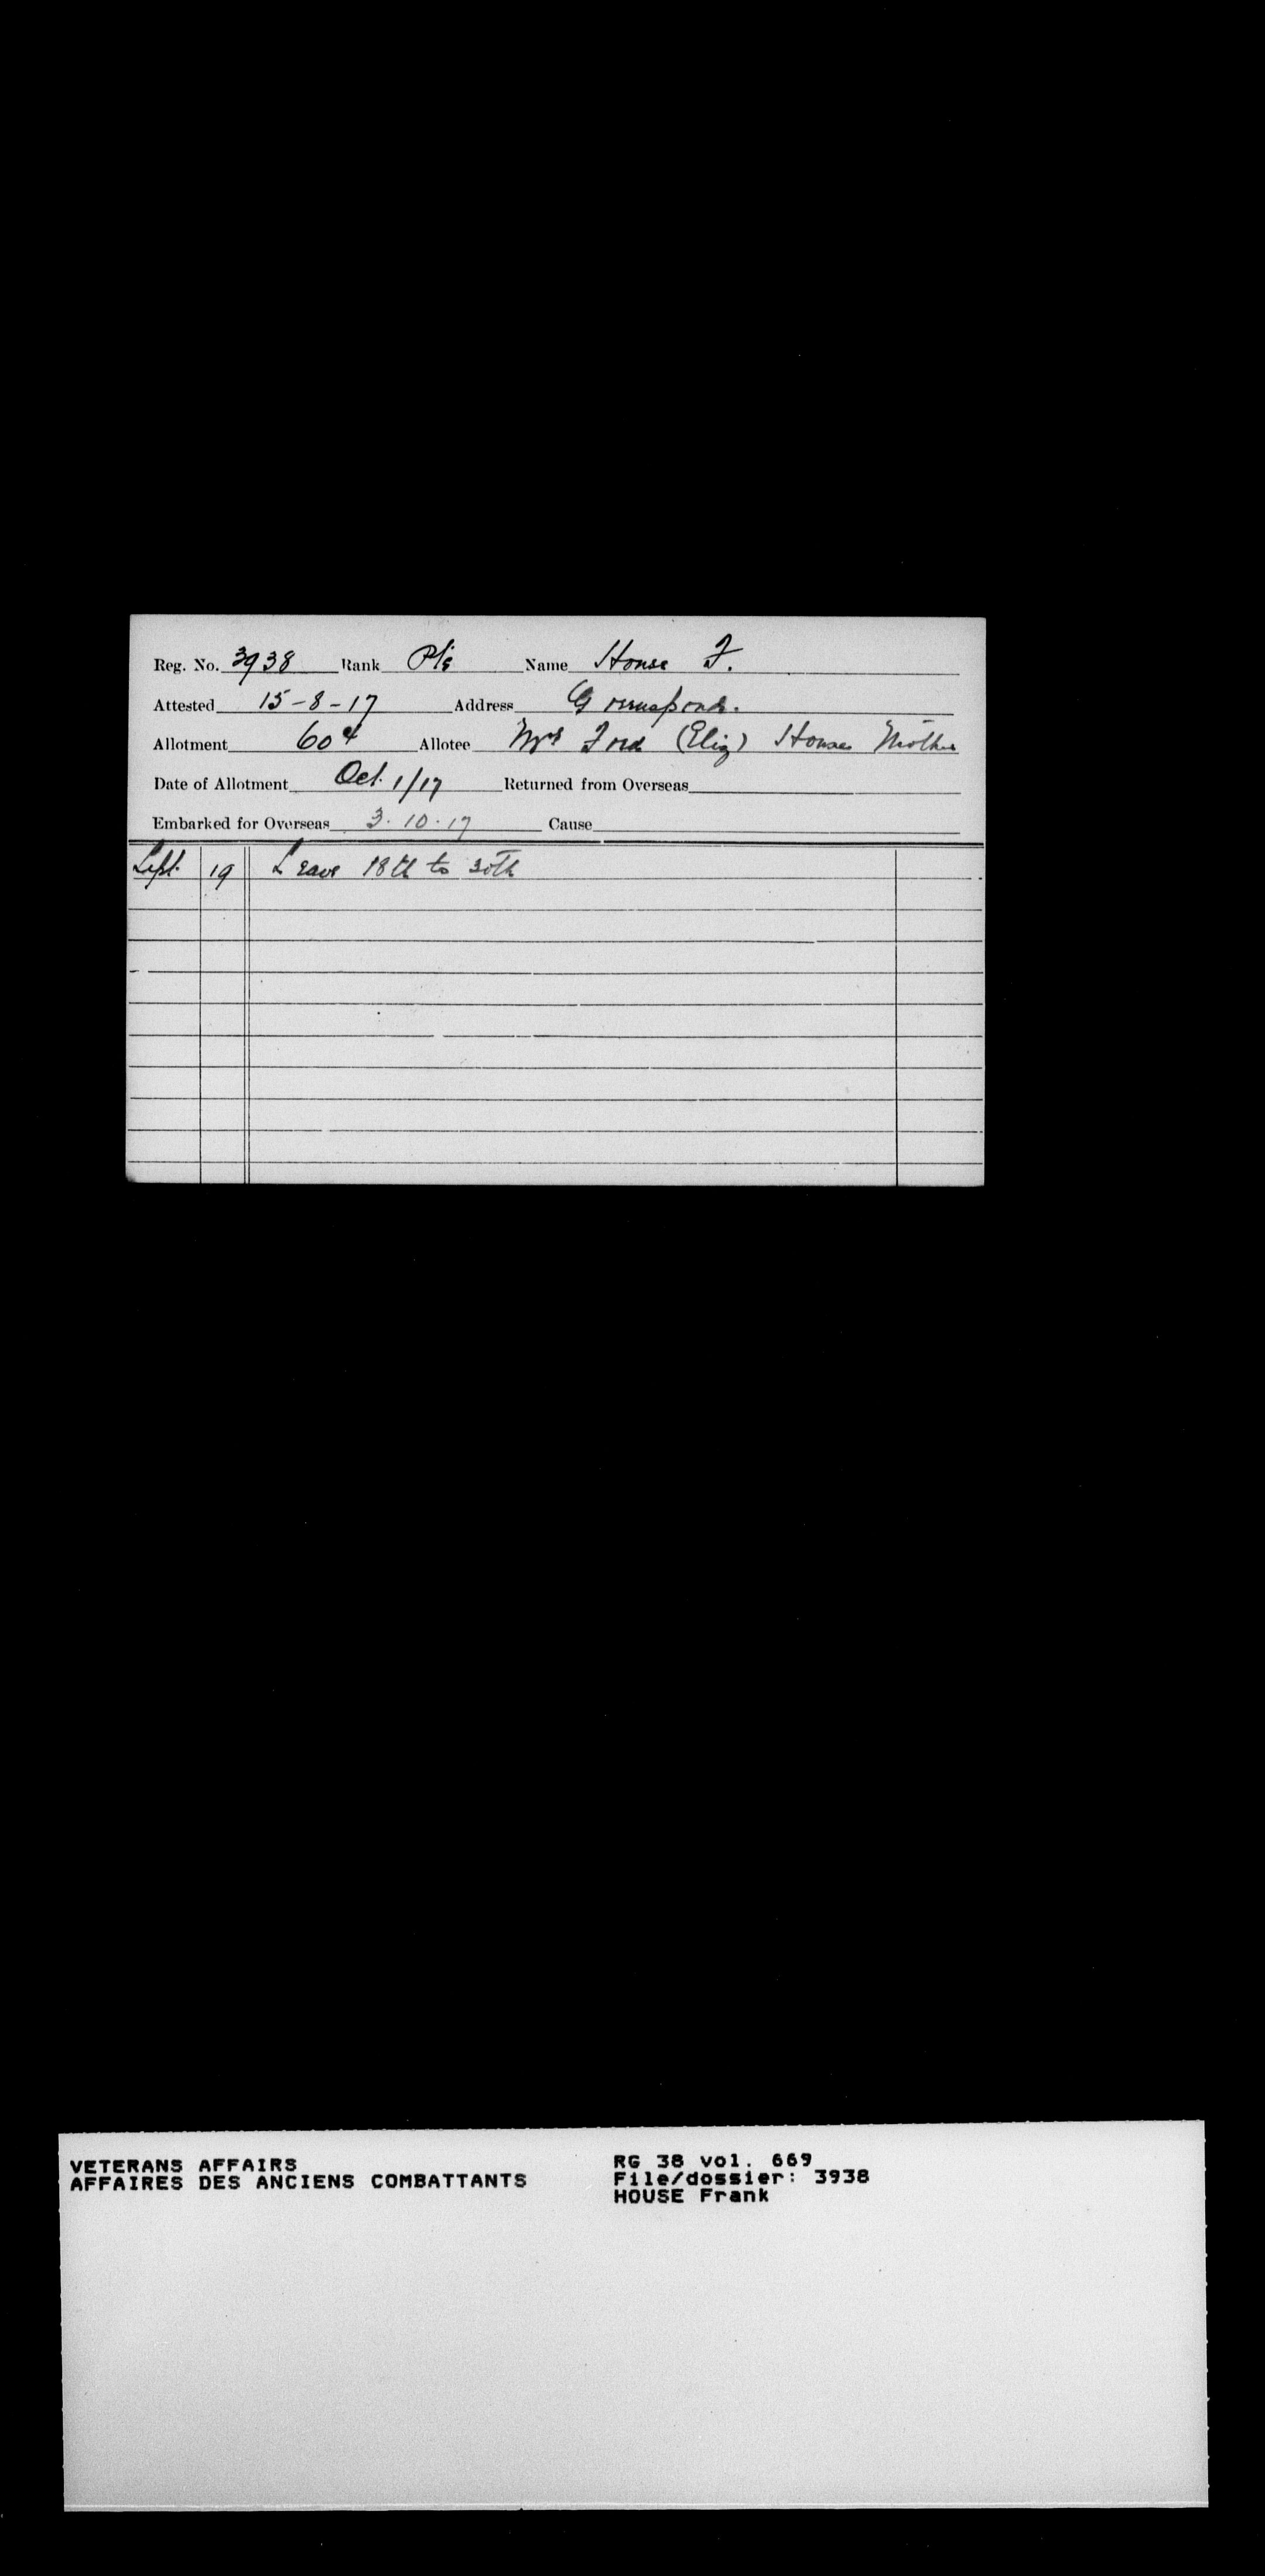 Reg. No. 3938 Rank Pte Name House F.
Attested 15-8-17 Address
Allotment 60¢ Allotee Mrs Fred (Eliz) House Mother
Date of Allotment Oct. 1/17 Returned from Overseas
Embarked for Overseas 3.10.17 Cause
Sept. 19 Leave 18th to 30th
VETERANS AFFAIRS
AFFAIRES DES ANCIENS COMBATTANTS
RG 38 vol. 669
File/dossier: 3938
HOUSE Frank